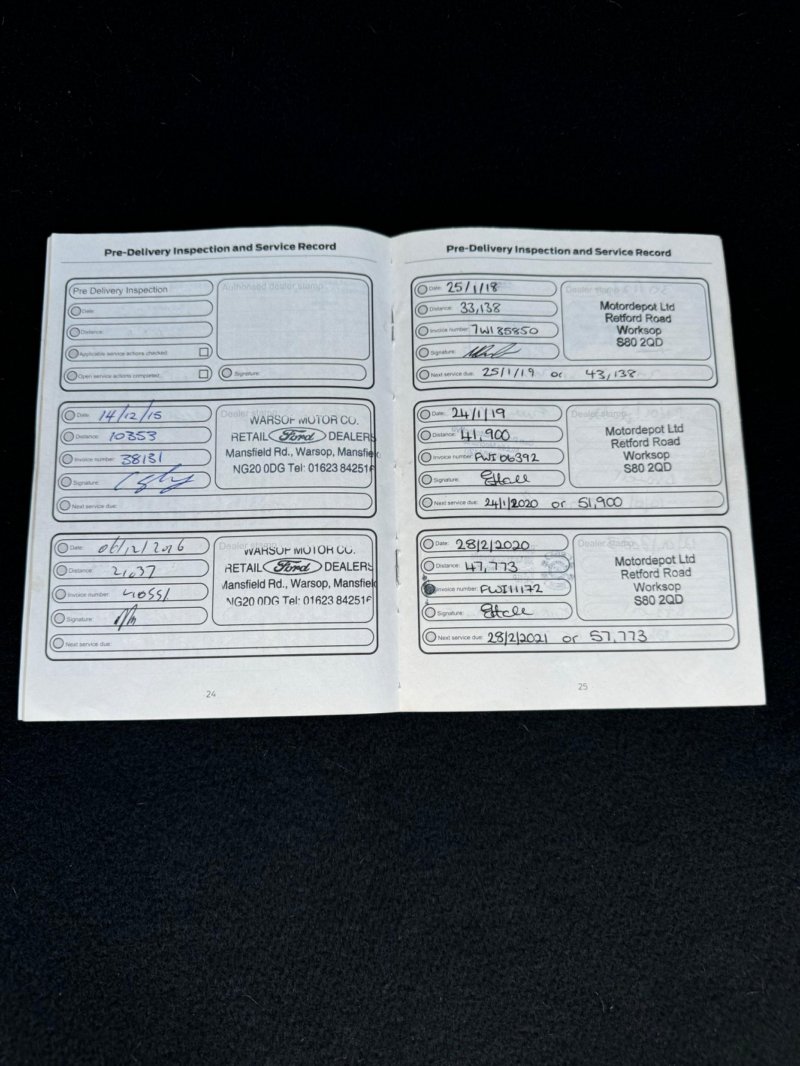 Pre-Delivery Inspection and Service Record
Pre Delivery Inspection
Authorised dealer stamp
Date:
Distance:
Applicable service actions checked:
Open service actions completed:
Signature:
Date: 14/12/15
Distance: 10353
Invoice number: 38131
Signature:
Next service due:
Dealer stamp
WARSOP MOTOR CO.
RETAIL Ford DEALERS
Mansfield Rd., Warsop, Mansfiel
NG20 0DG Tel: 01623 842516
Date: 06/12/2016
Distance: 21037
Invoice number: 40551
Signature:
Next service due:
Dealer stamp
WARSOP MOTOR CO.
RETAIL Ford DEALERS
Mansfield Rd., Warsop, Mansfiel
NG20 0DG Tel: 01623 842516
24
Pre-Delivery Inspection and Service Record
Date: 25/1/18
Distance: 33,138
Invoice number: 7WI85850
Signature:
Next service due: 25/1/19 or 43,138
Dealer stamp
Motordepot Ltd
Retford Road
Worksop
S80 2QD
Date: 24/1/19
Distance: 41,900
Invoice number: FWI06392
Signature:
Next service due: 24/1/2020 or 51,900
Dealer stamp
Motordepot Ltd
Retford Road
Worksop
S80 2QD
Date: 28/2/2020
Distance: 47,773
Invoice number: FWI11172
Signature:
Next service due: 28/2/2021 or 57,773
Dealer stamp
Motordepot Ltd
Retford Road
Worksop
S80 2QD
25